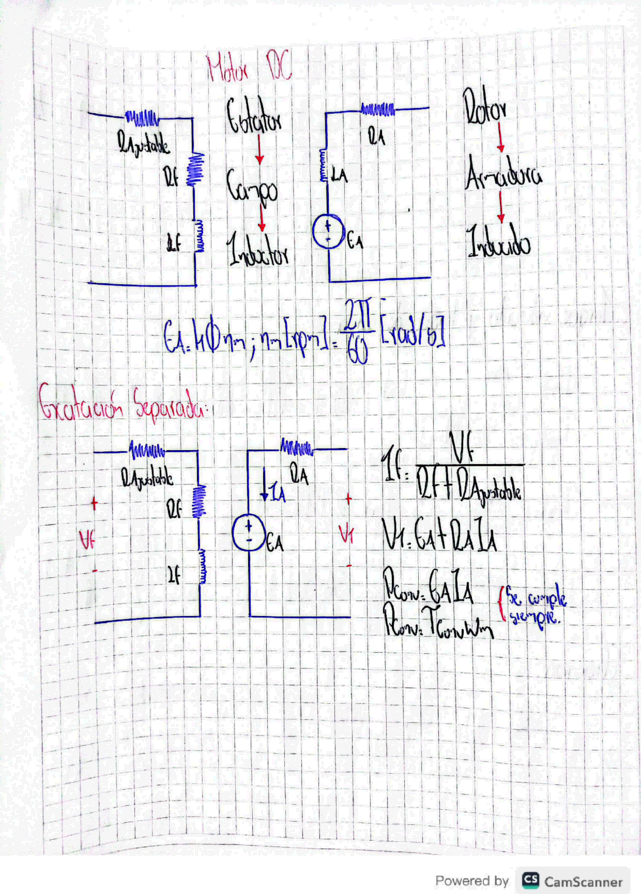 Motor DC
RAjustable
Rf
Lf
Estator
Campo
Inductor
RA
LA
EA
Rotor
Armadura
Inducido
EA = kΦnm ; nm[rpm] = 2π/60 [rad/s]
Excitación Separada:
RAjustable
Rf
Lf
+
Vf
-
RA
IA
+
-
EA
+
VT
-
If = Vf / Rf + RAjustable
VT = EA + RA IA
Pconv = EA IA
Pconv = Tconv Wm
Se cumple
siempre.
Powered by CS CamScanner